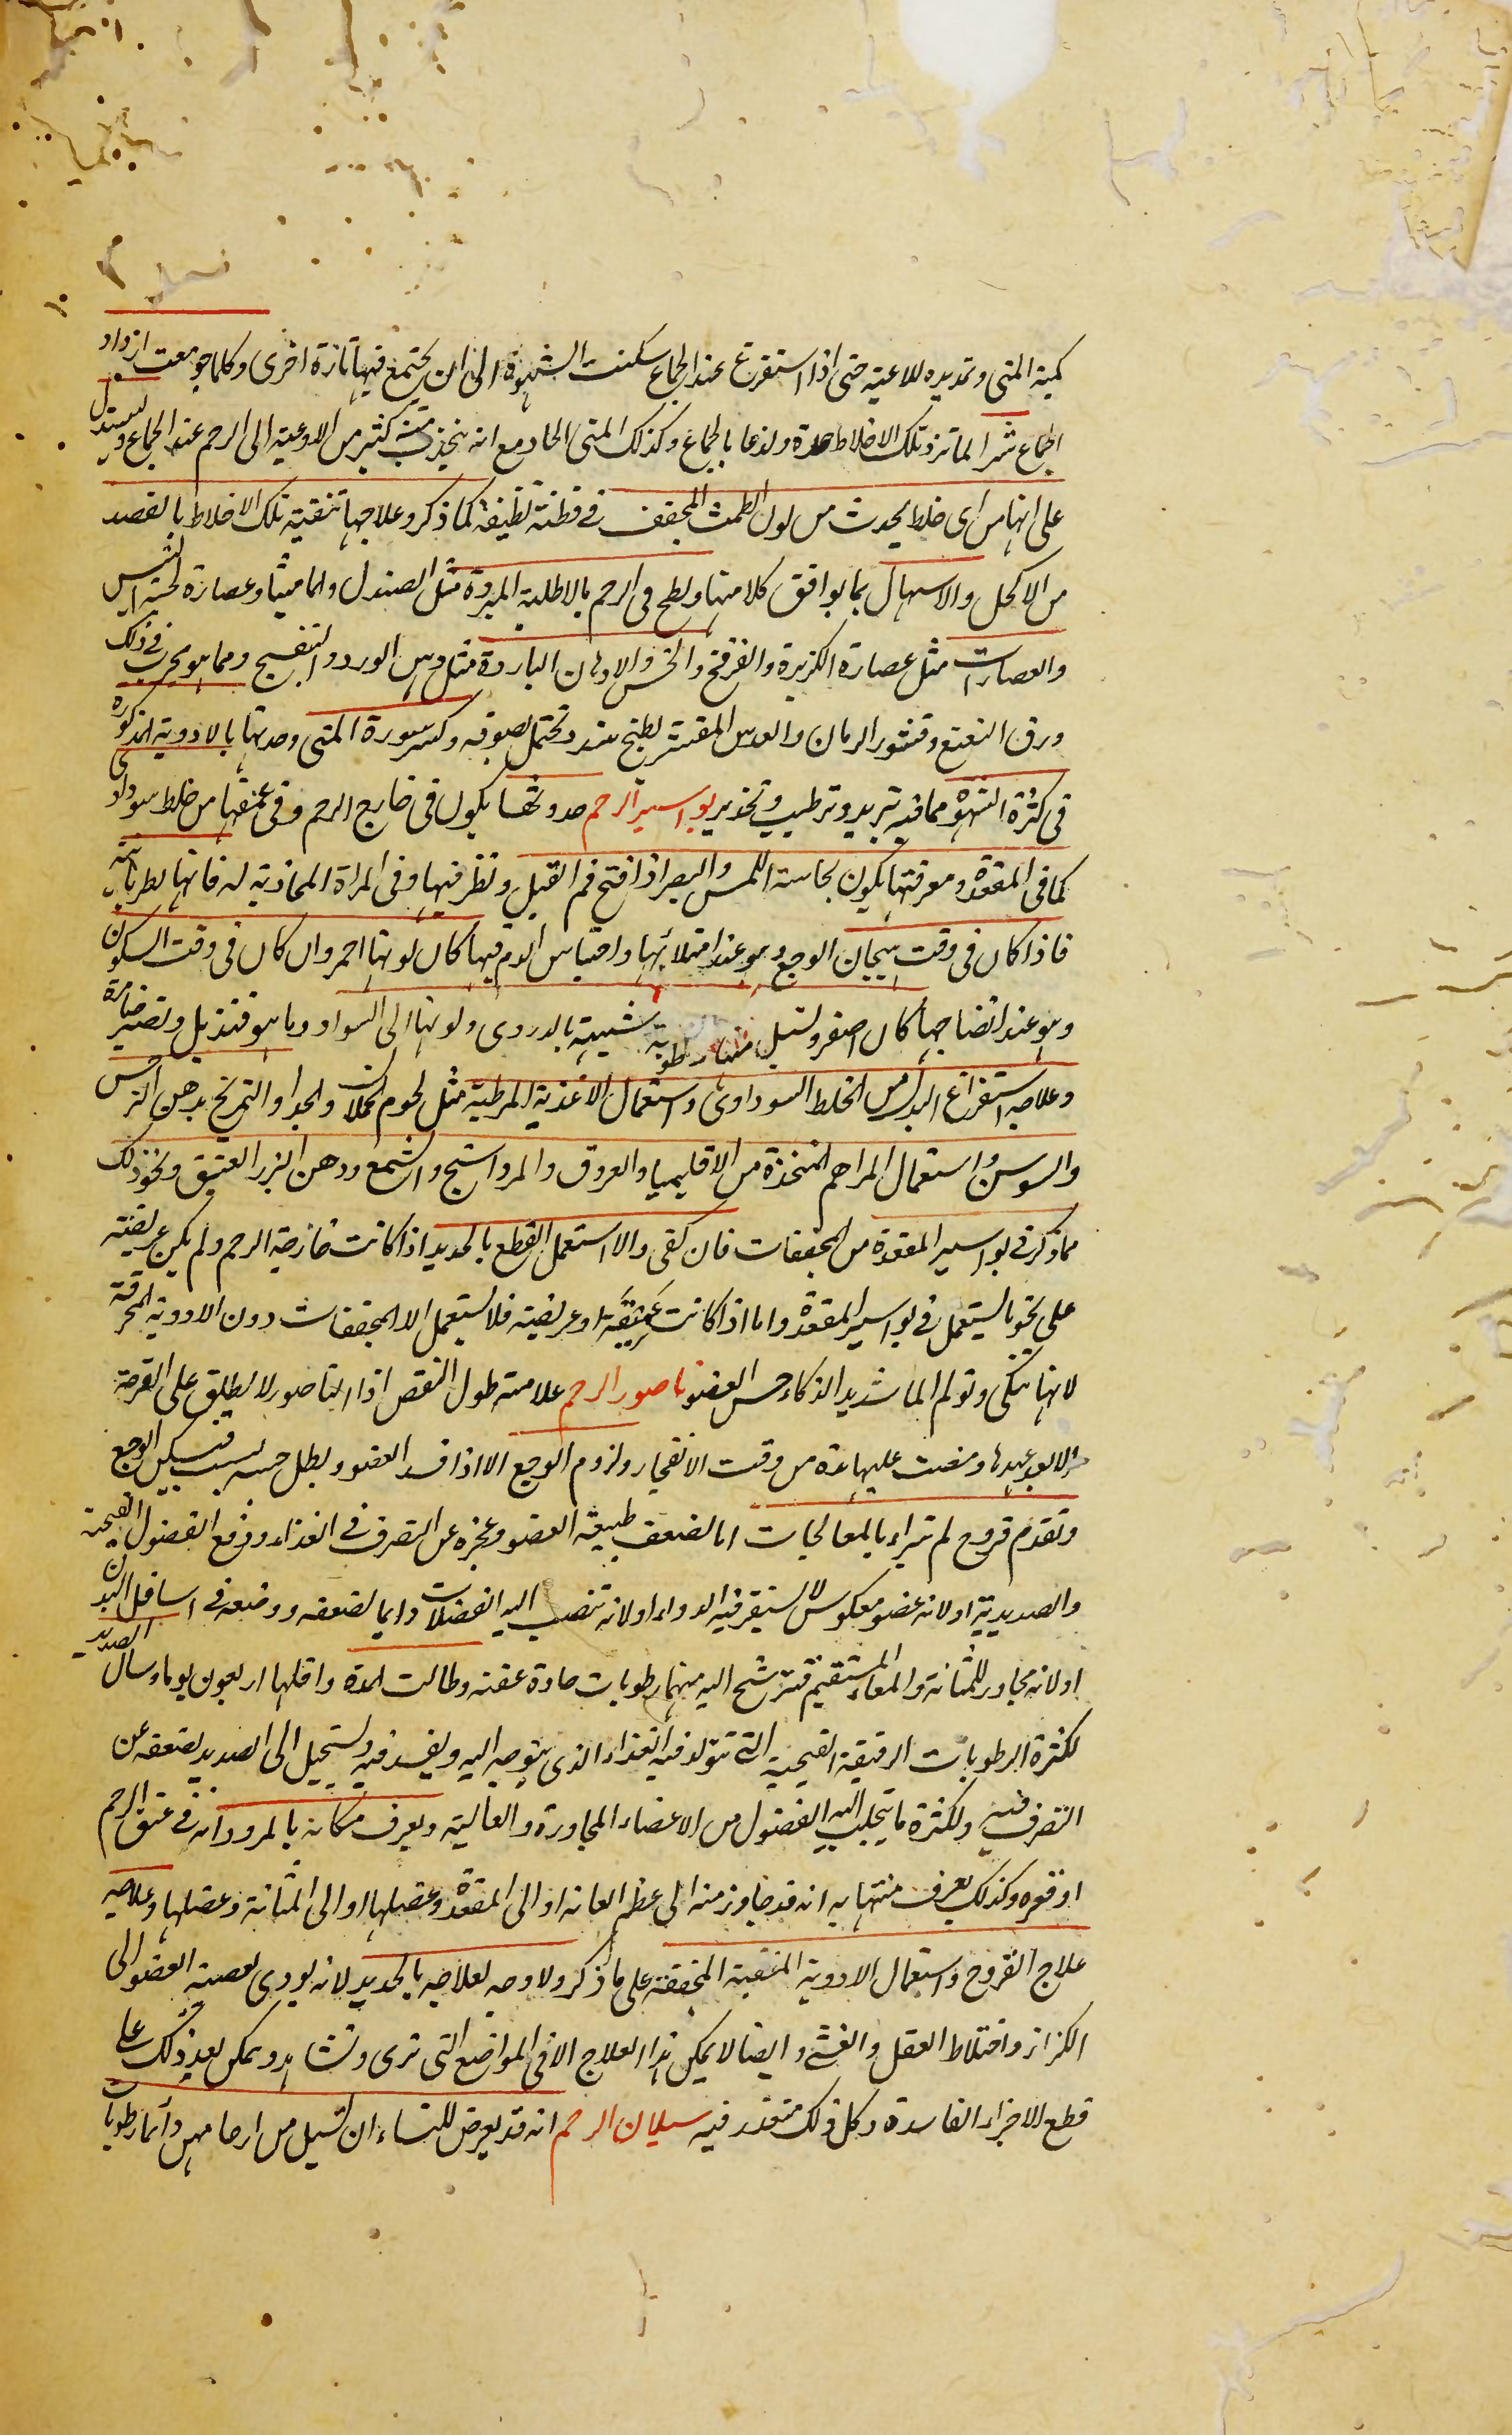 كمية المنى وتمديده للاعية حتى اذا استفرغ عند الجماع سكنت الشهوة الى ان يجتمع فيها تارة اخرى وكلما جومعت ازداد
الجماع شرا لما تزد تلك الاخلاط حدة ولذعا بالجماع وكذلك المنى الحاد مع انه ينجذب منه كثير من الاوعية الى الرحم عند الجماع ويستدل
على انها من اى خلط يحدث من لون الطمث المجفف فى قطنة نظيفة كما ذكر وعلاجها تنقية تلك الاخلاط بالفصد
من الاكحل والاسهال بما يوافق كلا منها ولطخ فى الرحم بالاطلية المبردة مثل الصندل والماميثا وعصارة لحية التيس
والعصارات مثل عصارة الكزبرة والفرفخ والخس والادهان الباردة مثل دهن الورد والبنفسج ومما هو مجرب فى ذلك
ورق النعنع وقشور الرمان والعدس المقشر يطبخ بنبيذ وتحتمل بصوفة وكسر سورة المنى وحدتها بالادوية المذكورة
فى كثرة الشهوة مما فيه تبريد وترطيب وتخدير بواسير الرحم حدوثها يكون فى خارج الرحم وفى عمقها من خلط سوداوى
كما فى المقعدة ومعرفتها يكون بحاسة اللمس والبصر اذا فتح فم القبل ونظر فيها وفى المراة المحاذية له فانها يظهر ناتئة
فاذا كان فى وقت هيجان الوجع وهو عند امتلائها واحتباس الدم فيها كان لونها احمر وان كان فى وقت السكون
وهو عند انضاجها كان اصفر وتسيل منها رطوبة شبيهة بالدردى ولونها الى السواد وما هو فتذبل وتصير ضامرة
وعلاجه استفراغ البدن من الخلط السوداوى واستعمال الاغذية المرطبة مثل لحوم الحملان والجداء والتمريخ بدهن النرجس
والسوسن واستعمال المراهم المتخذة من الاقليميا والعروق والمرداسنج والشمع ودهن البزر العتيق ونحو ذلك
مما ذكر فى بواسير المقعدة من المجففات فان كفى والا استعمل القطع بالحديد اذا كانت خارجة الرحم ولم يكن عريضة
على نحو ما يستعمل فى بواسير المقعدة واما اذا كانت عميقة او عريضة فلا يستعمل الا المجففات دون الادوية المحرقة
لانها تنكى وتولم الما شديدا لذكاء حس العضو ناصور الرحم علامته طول النقص اذا الناصور لا يطلق على القرحة
الا بعد عهدها ومضت عليها مدة من وقت الانفجار ولزوم الوجع الا اذا فسد العضو وبطل حسه فيسكن الوجع
وتقدم قروح لم تبراء بالمعالجات اما لضعف طبيعة العضو وعجزه عن التصرف فى الغذاء ودفع الفضول القيحية
والصديدية او لانه عضو معكوس لا يستقر فيه الدواء او لانه تنصب اليه الفضلات دايما لضعفه ووضعه فى اسافل البدن
او لانه مجاور للمثانة والمعاء المستقيم فتترشح اليه منهما رطوبات حادة عفنة وطالت المدة واقلها اربعون يوما وسال الصديد
لكثرة الرطوبات الرقيقة القيحية التى تتولد فيه الغذاء الذى يتوجه اليه ويفسد فيه ويستحيل الى الصديد لضعفه عن
التصرف فيه ولكثرة ما يتحلب اليه الفضول من الاعضاء المجاورة والعالية ويعرف مكانه بالمرود انه فى عنق الرحم
او فى قعره وكذلك يعرف منتهاه به انه قد جاوز منه الى عظم العانة او الى المقعدة وعضلها او الى المثانة وعضلها وعلاجه
علاج القروح واستعمال الادوية المنقية المجففة على ما ذكر ولا وجه لعلاجه بالحديد لانه يودى لعصبية العضو الى
الكزاز واختلاط العقل والغشى وايضا لا يمكن هذا العلاج الا فى المواضع التى ترى وتشاهد ويمكن بعد ذلك على
قطع الاجزاء الفاسدة وكل ذلك متعذر فيه سيلان الرحم انه قد يعرض للنساء ان تسيل من ارحامهن دائما رطوبات